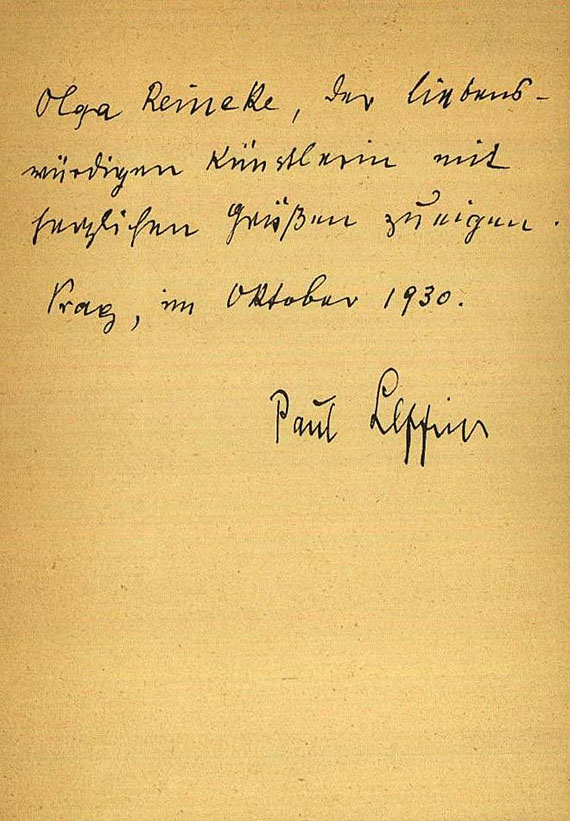 Olga Reineke, der liebens-
würdigen Künstlerin mit
herzlichen Grüßen zueigen.
Prag, im Oktober 1930.
Paul Leppin